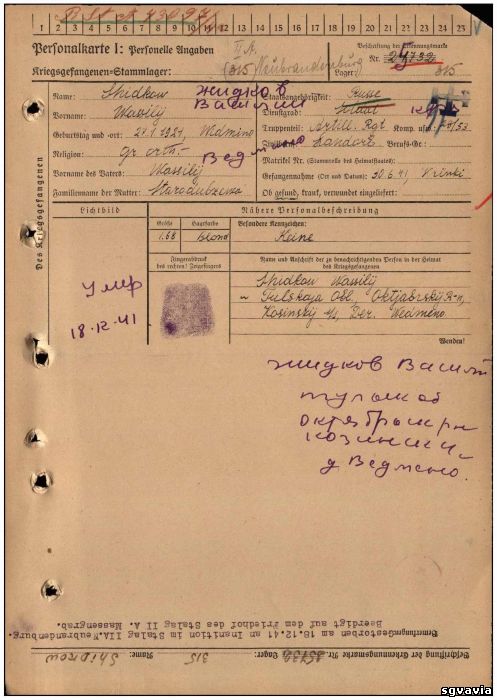 1 2 3 4 5 6 7 8 9 10 11 12 13 14 15 16 17 18 19 20 21 22 23 24 25
Personalkarte I: Personelle Angaben
II A.
Beschriftung der Erkennungsmarke
Kriegsgefangenen-Stammlager:
(315) Neubrandenburg
Nr.
Lager: 315
Des Kriegsgefangenen
Name: Shidkow
Жидков
Василий
Vorname: Wassilij
Geburtstag und -ort: 21.1.1921, Wedmino
Ведмено
Religion: Gr. orth. -
Vorname des Vaters: Wassilij
Familienname der Mutter: Starodubzewa
Staatsangehörigkeit: Russe
Dienstgrad: Soldat
Truppenteil: Artill. Rgt Komp. usw.:
Beruf-Gr.:
Matrikel Nr. (Stammrolle des Heimatstaates):
Gefangennahme (Ort und Datum): 30.6.41, Krinki
Ob gesund, krank, verwundet eingeliefert:
Lichtbild
Nähere Personalbeschreibung
Größe
Haarfarbe
Besondere Kennzeichen:
1.68
Blond
Keine
Fingerabdruck
des rechten! Zeigefingers
Name und Anschrift der zu benachrichtigenden Person in der Heimat
des Kriegsgefangenen
умер
18.12.41
Shidkow Wassilij
Tulskaja Obl., Oktjabrskij R-n,
Kosinskij s/s, Der. Wedmeno
Wenden!
Жидков Васил
д Ведмено.
Bemerkungen: Gestorben am 18.12.41 an Inanition im Stalag IIA Neubrandenburg.
Beerdigt auf dem Friedhof des Stalag II A Massengrab.
Beschriftung der Erkennungsmarke Nr.
Lager: 315
Name: Shidkow
sgvavia